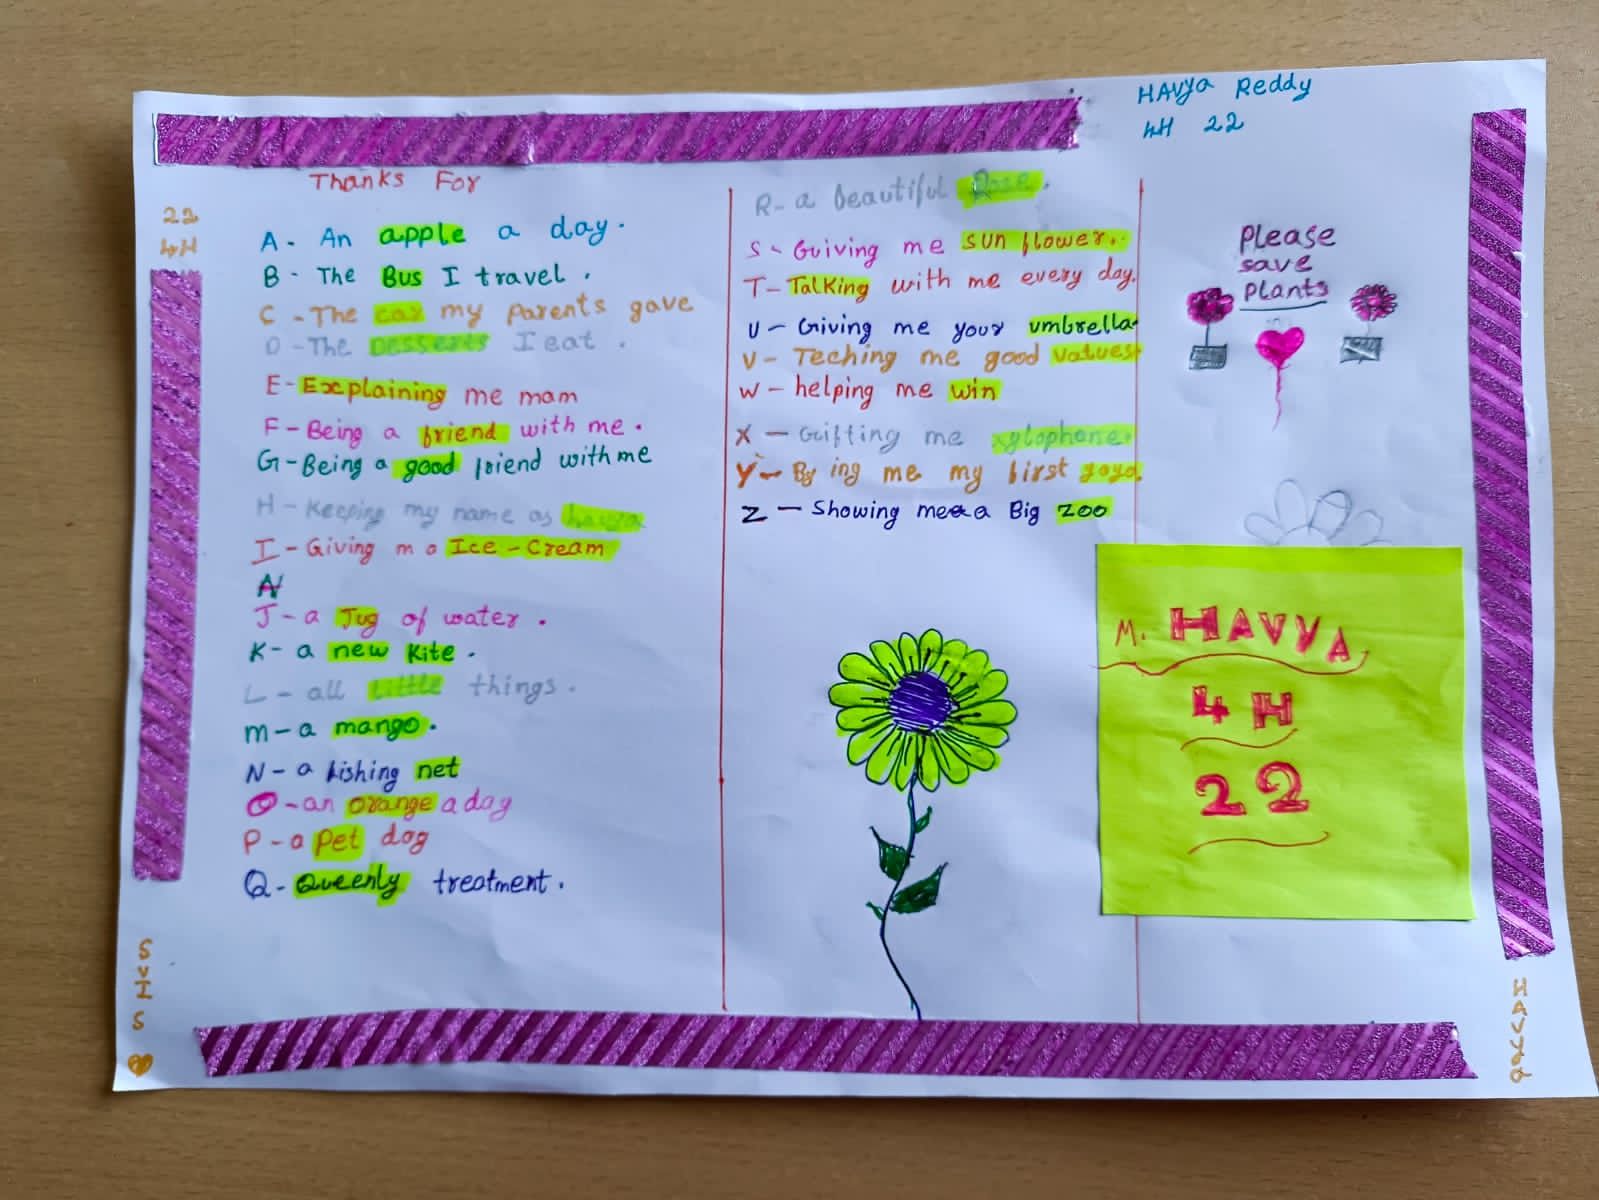 HAVya Reddy
4H 22
Thanks For
22
4H
A - An apple a day.
B - The Bus I travel.
C - The car my parents gave
D - The Desserts I eat.
E - Explaining me mam
F - Being a friend with me.
G - Being a good friend with me
H - Keeping my name as havya
I - Giving me Ice-Cream
J - a Jug of water.
K - a new kite.
L - all little things.
m - a mango.
N - a fishing net
O - an orange a day
P - a pet dog
Q - Queenly treatment.
R - a beautiful Rose.
S - Guiving me sun flower.
T - Talking with me every day.
U - Giving me your umbrella
V - Teching me good values
W - helping me win
X - Guifting me xylophone.
Y - By ing me my first
Z - Showing me a Big zoo
Please
save
Plants
M. HAVYA
4H
22
SVIS
HAVya